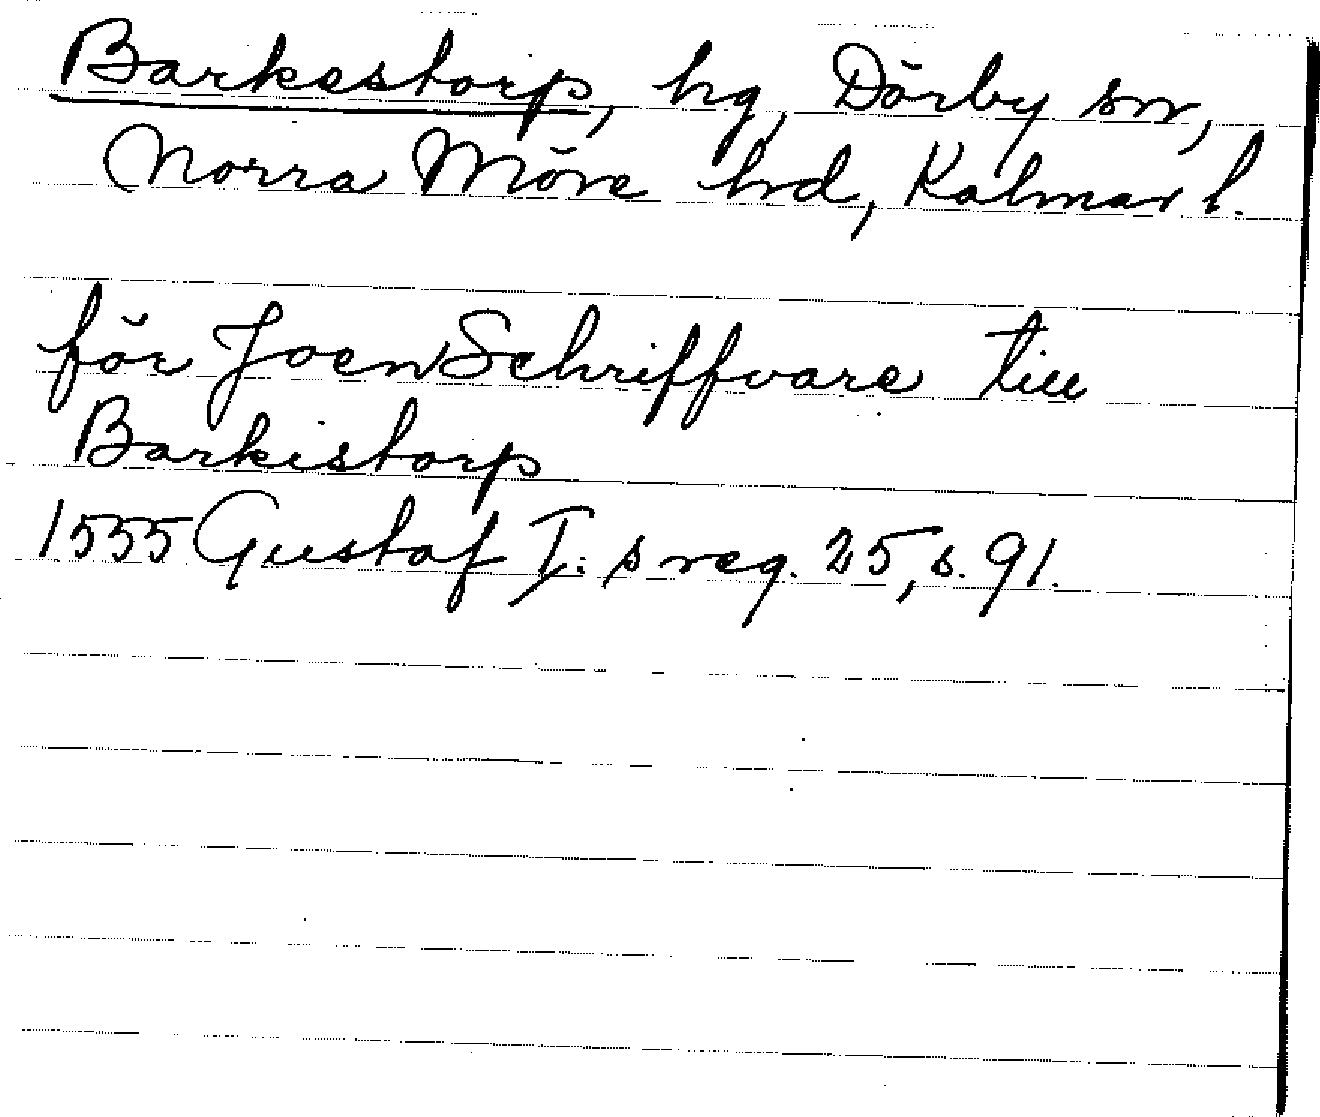 Barkestorp, hg, Dörby sn,
Norra Möre hrd, Kalmar l.
för Joen Schriffvare till
Barkistorp
1555 Gustaf I:s reg. 25, s. 91.